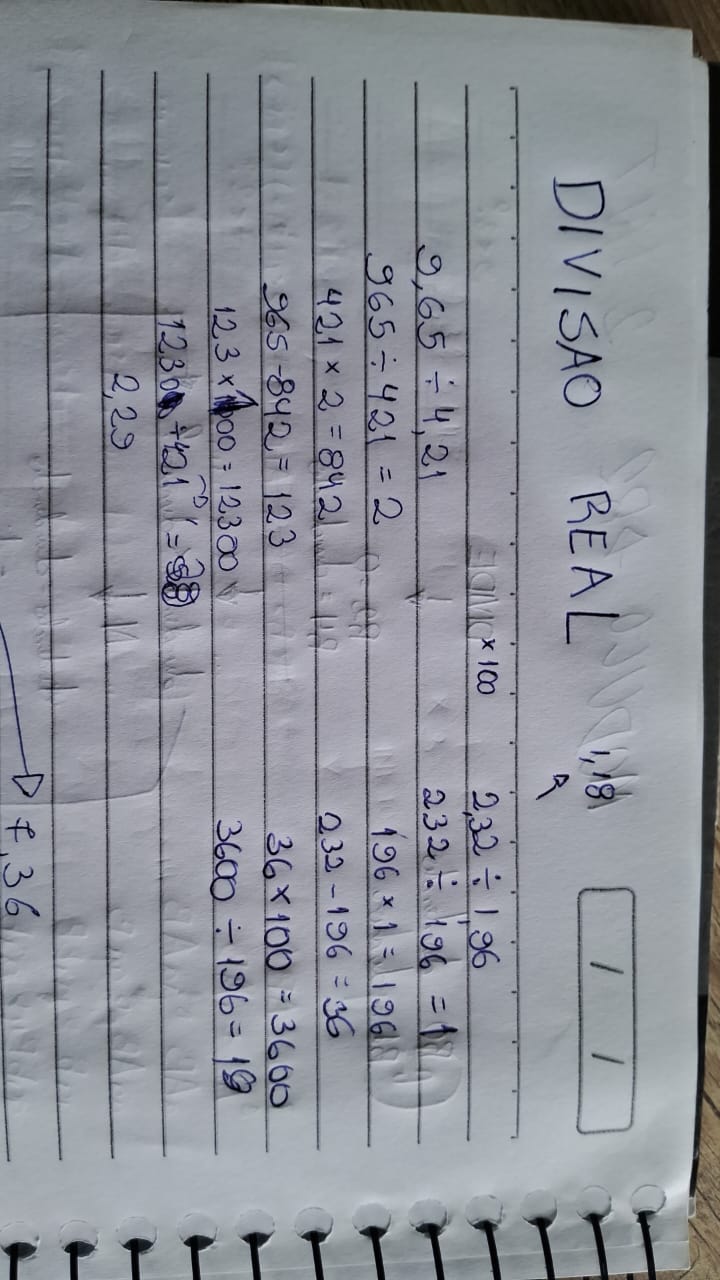 DIVISAO REAL
/ /
1,18
×100
9,65 ÷ 4,21
965 ÷ 421 = 2
421 × 2 = 842
965 - 842 = 123
12,3 × 100 = 12300
÷ 421
2,29
2,32 ÷ 1,96
232 ÷ 196 = 1
196 × 1 = 196
232 - 196 = 36
36 × 100 = 3600
3600 ÷ 196 = 18
7,36